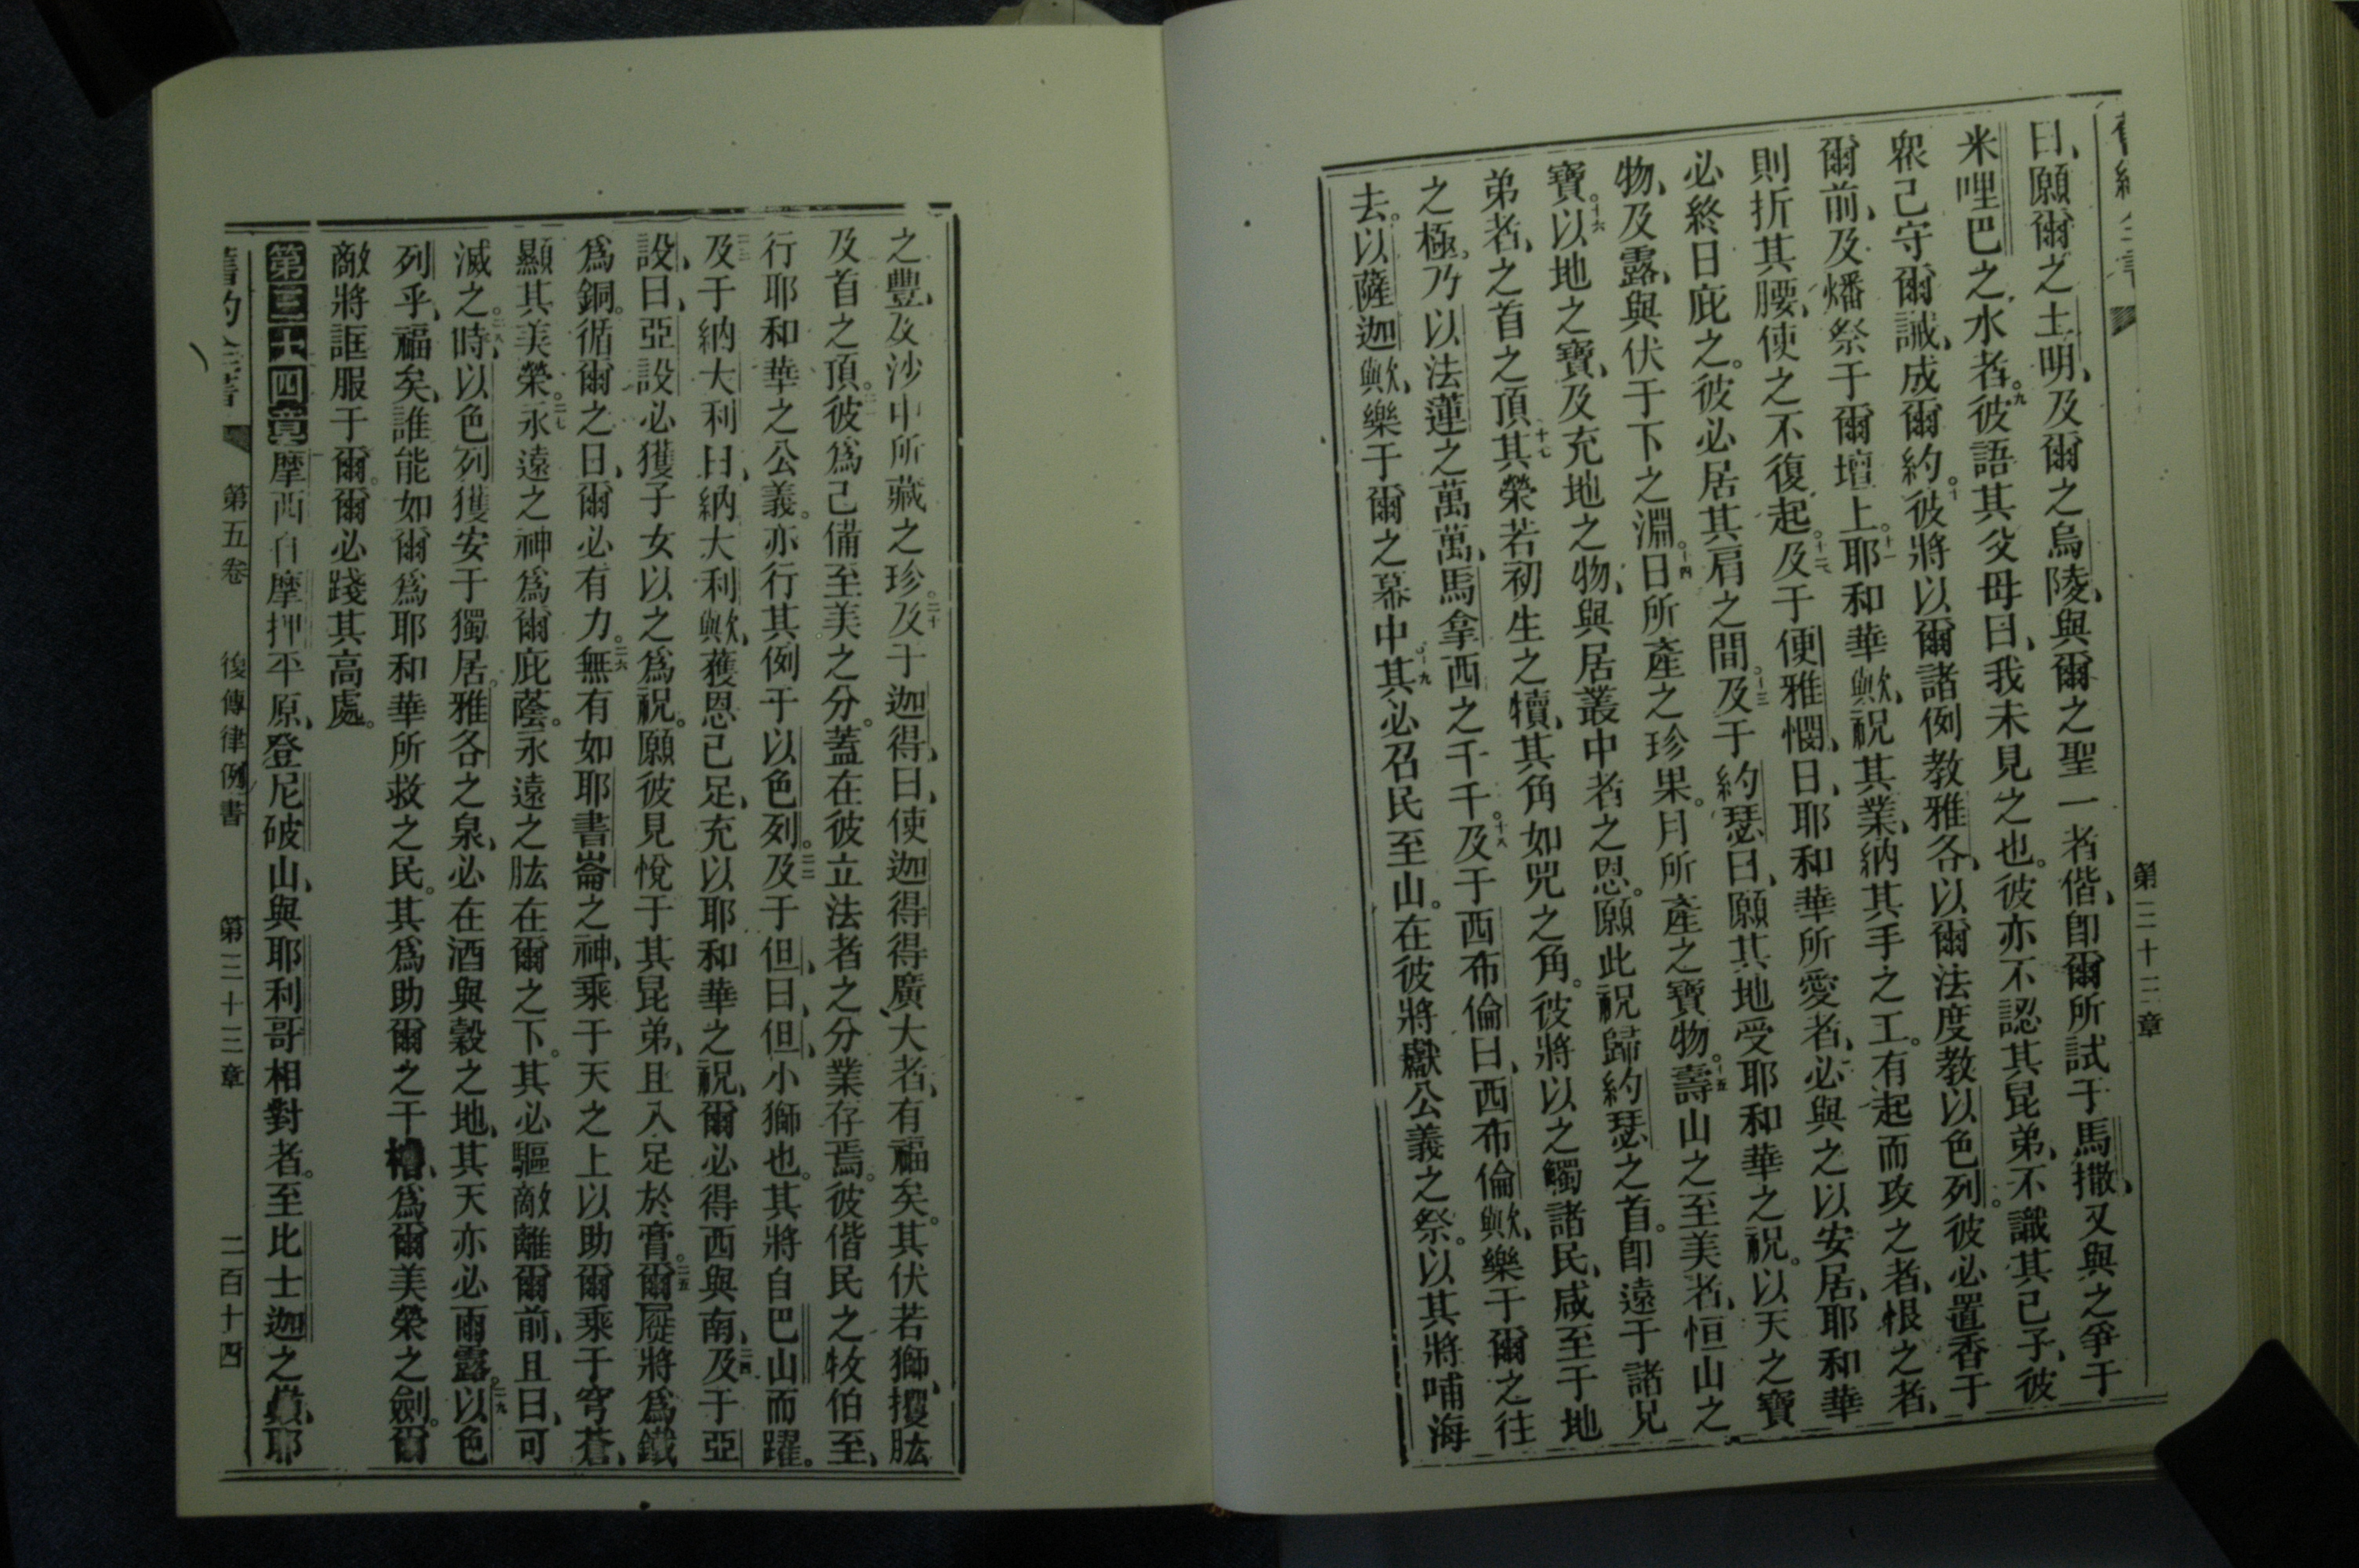 第三十三章
曰、願爾之土明、及爾之烏陵、與爾之聖一者偕、卽爾所試于馬撒、又與之爭于
米哩巴之水者。九彼語其父母曰、我未見之也。彼亦不認其昆弟、不識其己子、彼
眾己守爾誡、成爾約。十彼將以爾諸例教雅各、以爾法度教以色列。彼必置香于
爾前、及燔祭于爾壇上。十一耶和華歟、祝其業、納其手之工。有起而攻之者、恨之者、
則折其腰、使之不復起。十二及于便雅憫、曰、耶和華所愛者、必與之以安居、耶和華
必終日庇之。彼必居其肩之間。十三及于約瑟曰、願其地受耶和華之祝。以天之寶
物、及露、與伏于下之淵。十四日所產之珍果。月所產之寶物。十五壽山之至美者、恒山之
寶。十六以地之寶、及充地之物、與居叢中者之恩。願此祝歸約瑟之首。卽遠于諸兄
弟者、之首之頂。十七其榮若初生之犢、其角如兕之角。彼將以之觸諸民、咸至于地
之極。乃以法蓮之萬萬、馬拿西之千千。十八及于西布倫曰、西布倫歟、樂于爾之往
去。以薩迦歟、樂于爾之幕中。十九其必召民至山。在彼將獻公義之祭。以其將哺海
之豐、及沙中所藏之珍。二十及于迦得、曰、使迦得得廣大者、有福矣。其伏若獅、攫肱
及首之頂。二一彼爲己備至美之分。蓋在彼立法者之分業存焉。彼偕民之牧伯至、
行耶和華之公義。亦行其例于以色列。二二及于但、曰、但、小獅也。其將自巴山而躍。
二三及于納大利曰、納大利歟、蒦恩已足、充以耶和華之祝、爾必得西與南、二四及于亞
設、曰、亞設必獲子女以之爲祝。願彼見悅于其昆弟、且入足於膏。二五爾屣將爲鐵
爲銅。循爾之日、爾必有力。二六無有如耶書崙之神、乘于天之上以助爾乘于穹蒼、
顯其美榮。二七永遠之神爲爾庇蔭。永遠之肱在爾之下。其必驅敵離爾前、且曰、可
滅之。二八時、以色列獲安于獨居。雅各之泉、必在酒與穀之地、其天亦必雨露。二九以色
列乎、福矣、誰能如爾爲耶和華所救之民。其爲助爾之干櫓、爲爾美榮之劍。爾
敵將誆服于爾。爾必踐其高處。
第三十四章 摩西自摩押平原、登尼破山、與耶利哥相對者。至比士迦之巔、耶
第五卷 復傳律例書 第三十三章 二百十四